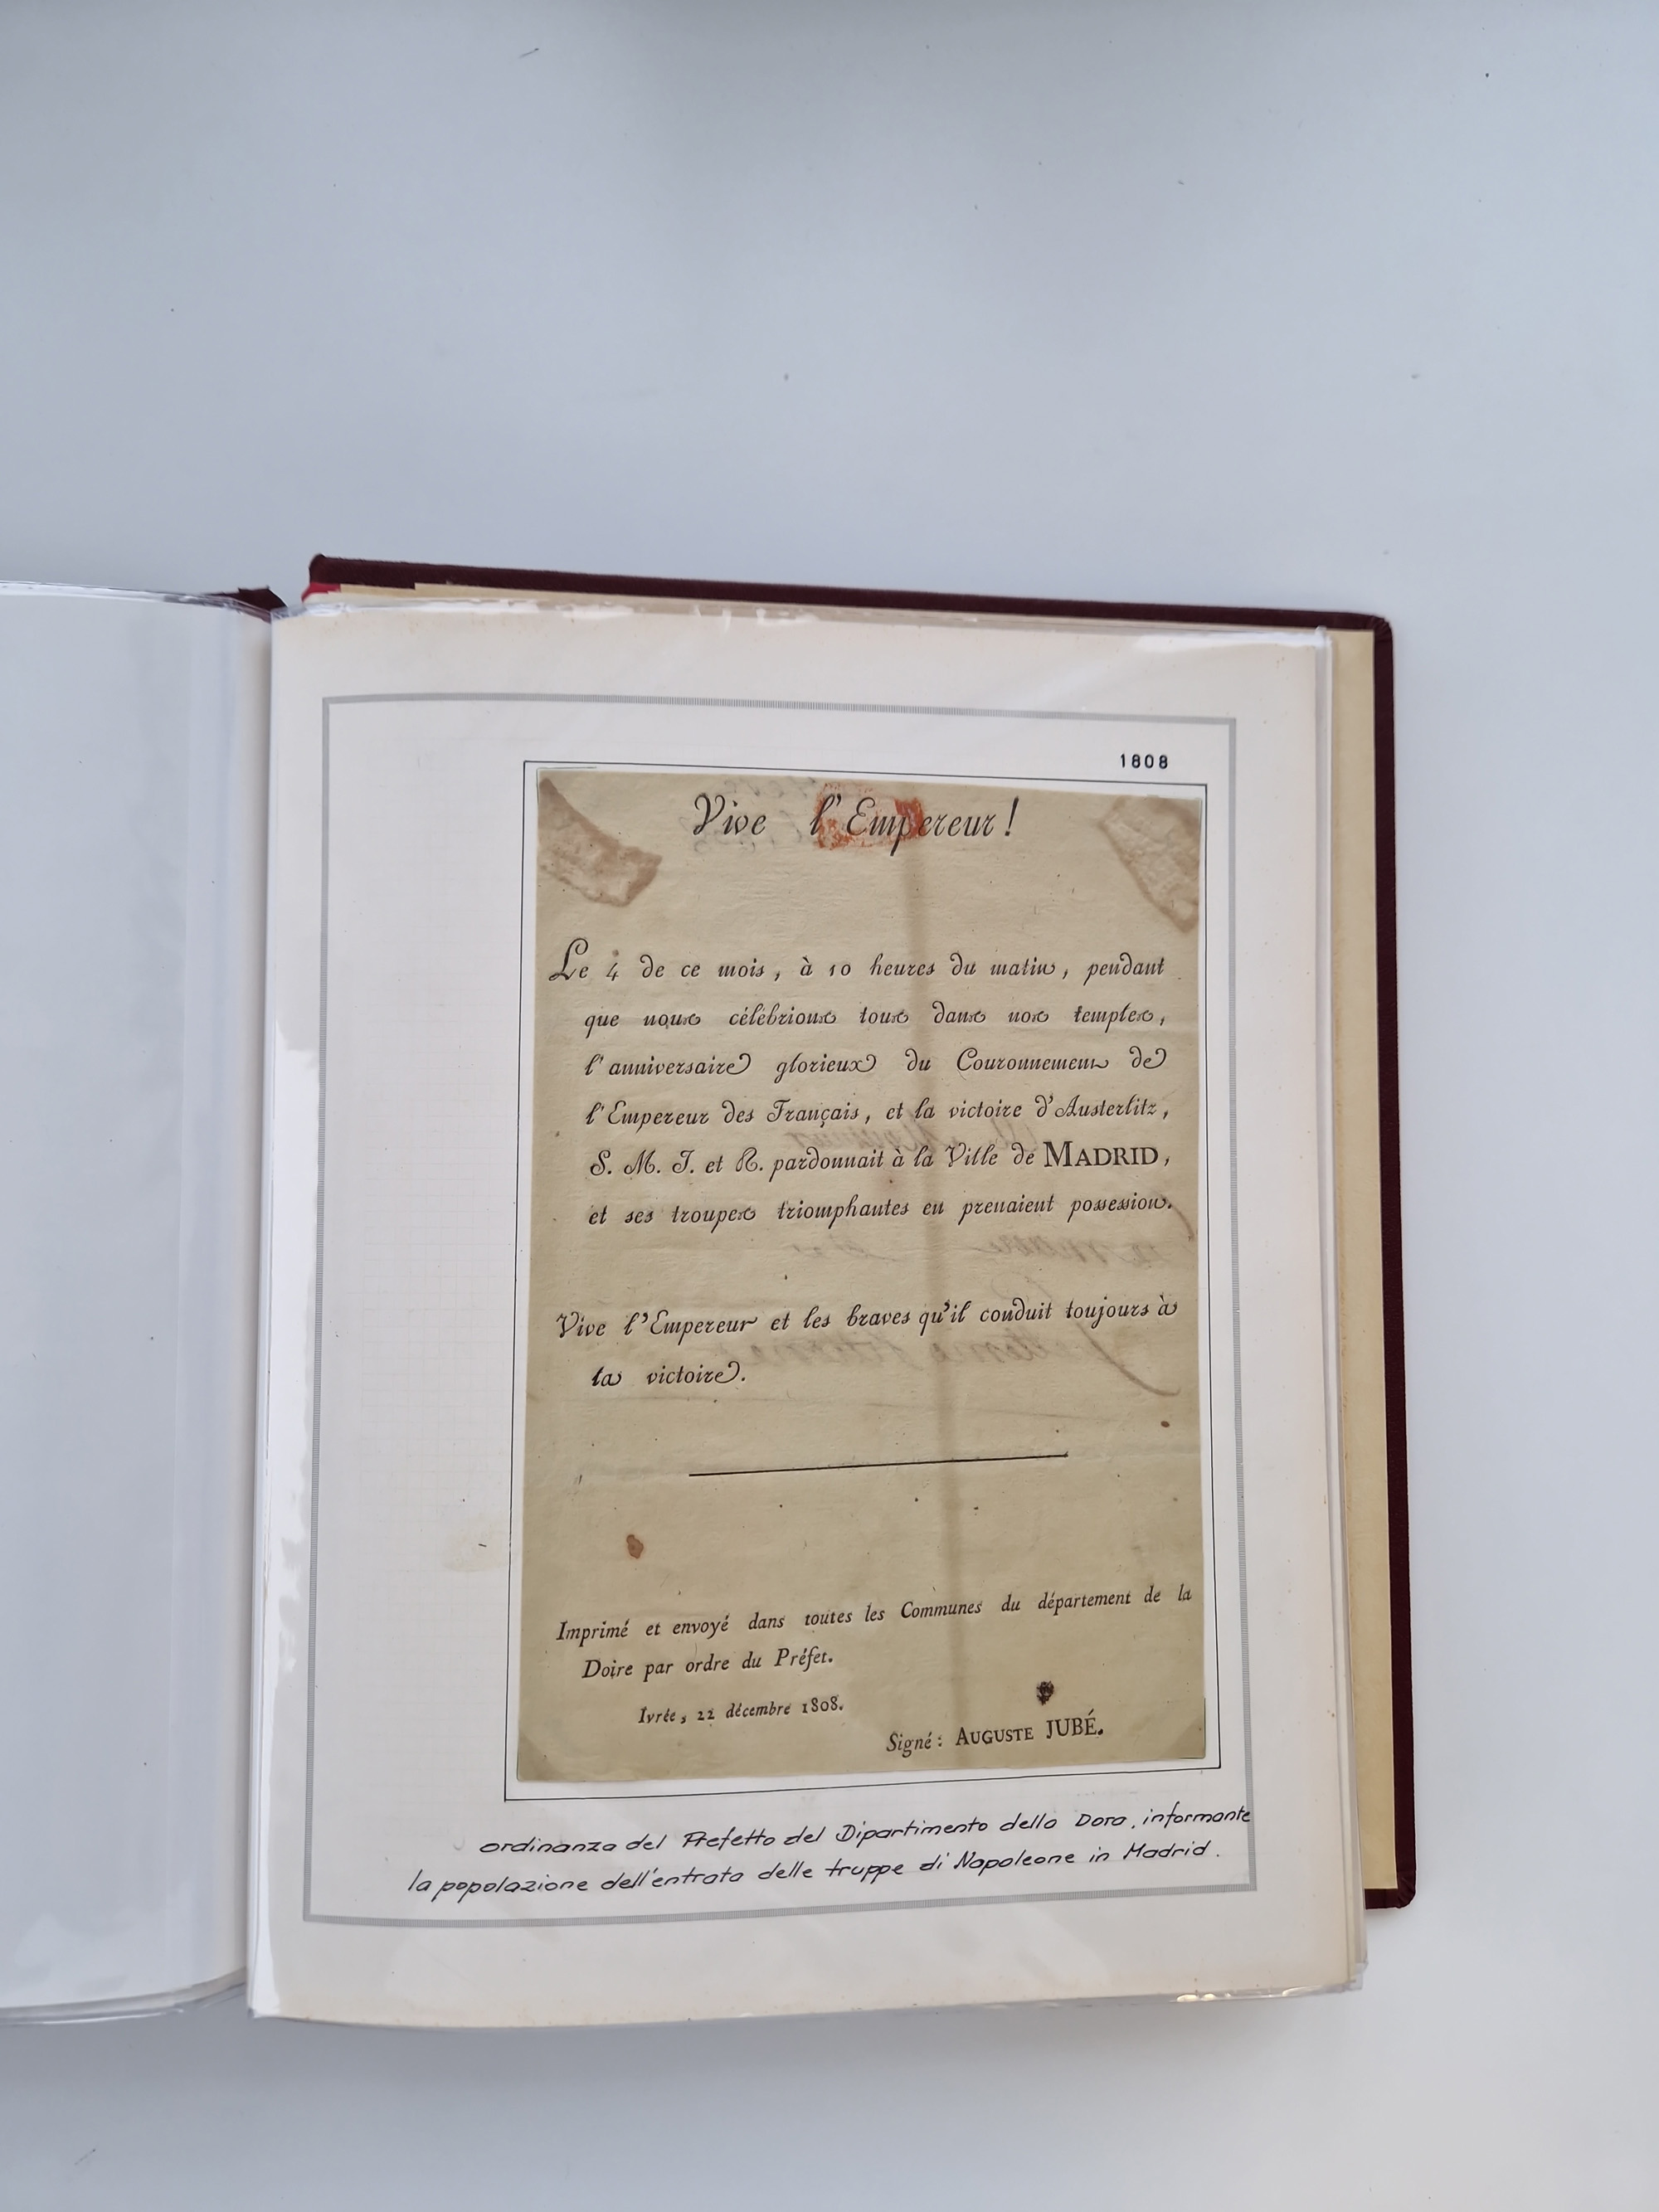 1808
Vive l'Empereur !
Le 4 de ce mois, à 10 heures du matin, pendant
que nous célébrions tous dans nos temples,
l'anniversaire glorieux du Couronnement de
l'Empereur des Français, et la victoire d'Austerlitz,
S. M. I. et R. pardonnait à la Ville de MADRID,
et ses troupes triomphantes en prenaient possession.
Vive l'Empereur et les braves qu'il conduit toujours à
la victoire.
Imprimé et envoyé dans toutes les Communes du département de la
Doire par ordre du Préfet.
Ivrée, 22 décembre 1808.
Signé : AUGUSTE JUBÉ.
ordinanza del Prefetto del Dipartimento della Dora, informante
la popolazione dell'entrata delle truppe di Napoleone in Madrid.